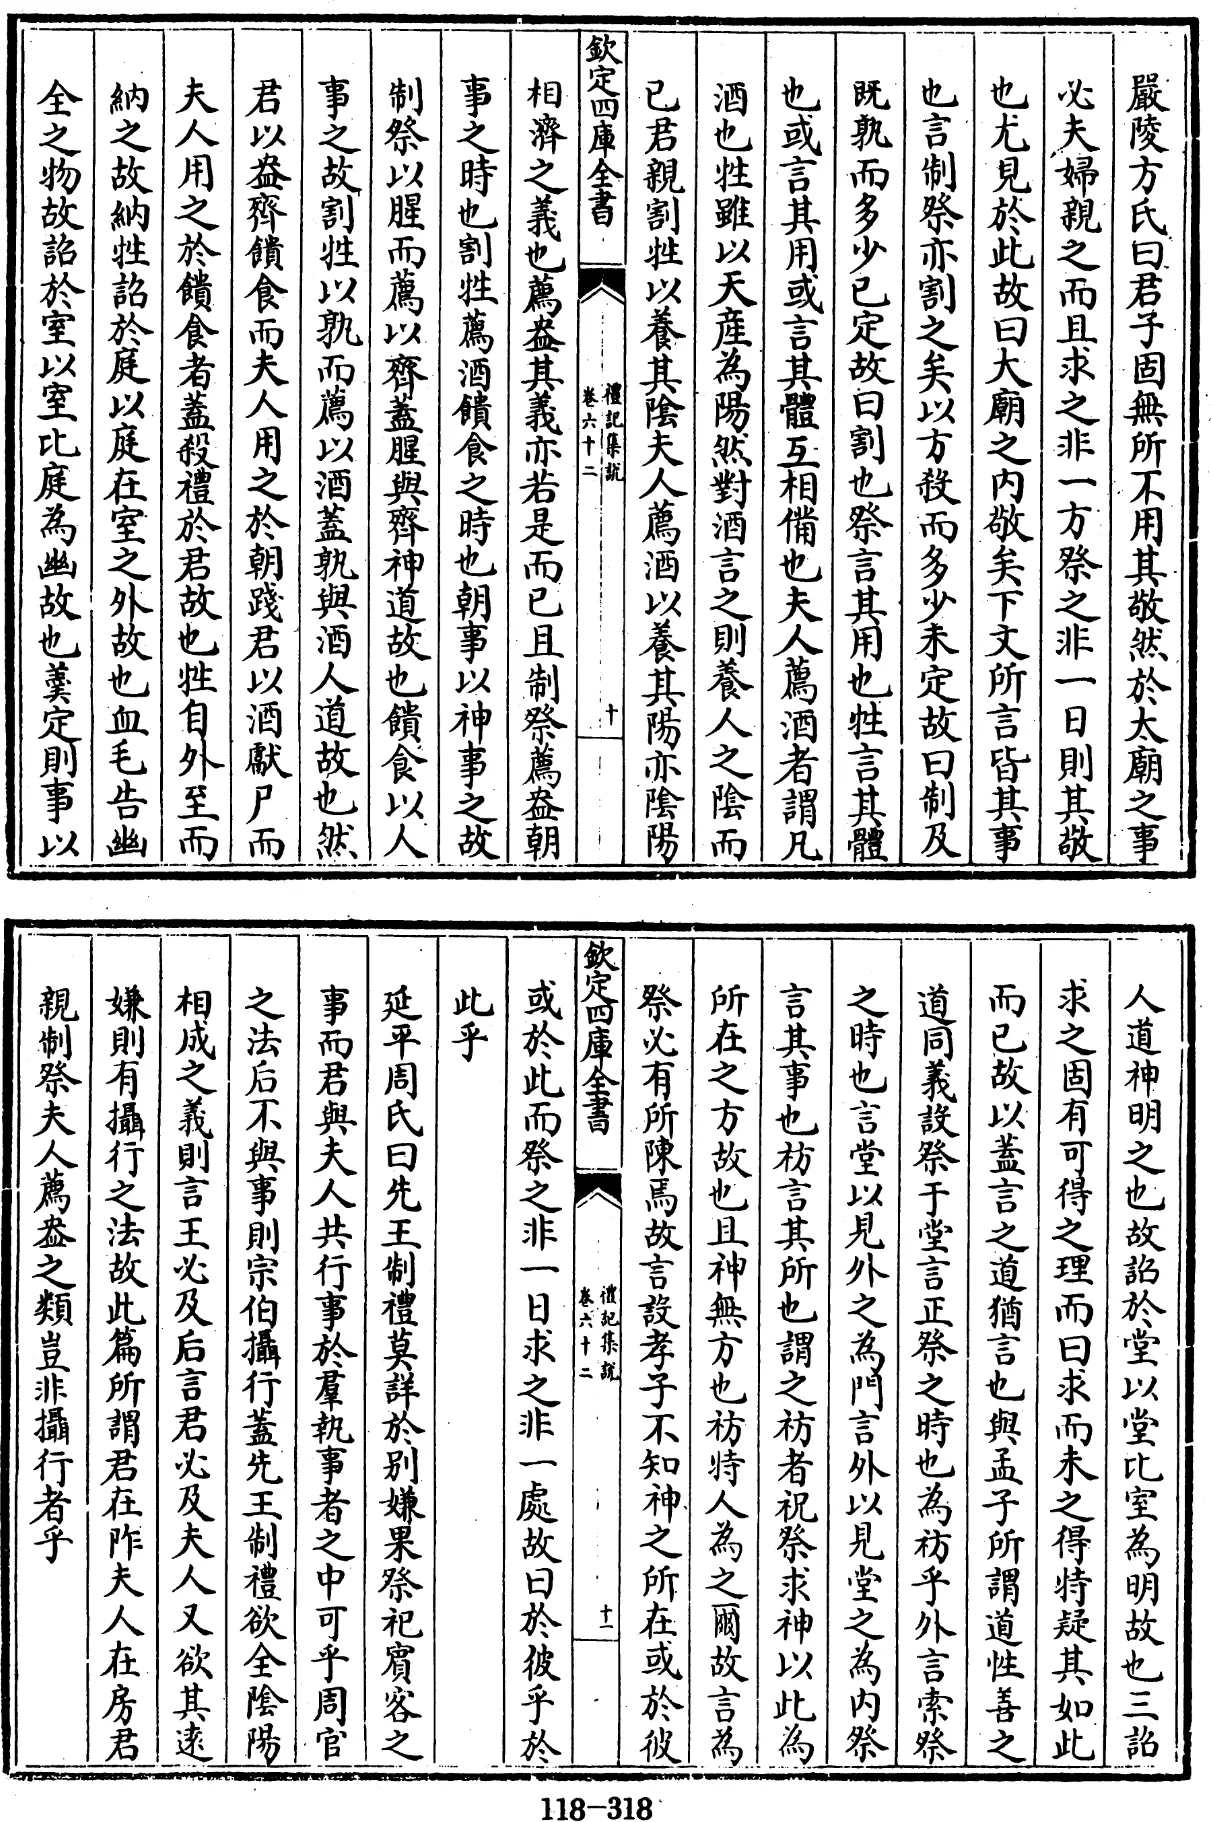 嚴陵方氏曰君子固無所不用其敬然於太廟之事
必夫婦親之而且求之非一方祭之非一日則其敬
也尤見於此故曰大廟之内敬矣下文所言皆其事
也言制祭亦割之矣以方殺而多少未定故曰制及
既孰而多少已定故曰割也祭言其用也牲言其體
也或言其用或言其體互相備也夫人薦酒者謂凡
酒也牲雖以天産為陽然對酒言之則養人之陰而
已君親割牲以養其陰夫人薦酒以養其陽亦陰陽
欽定四庫全書
禮記集說
卷六十二
十
相濟之義也薦盎其義亦若是而已且制祭薦盎朝
事之時也割牲薦酒饋食之時也朝事以神事之故
制祭以腥而薦以齊蓋腥與齊神道故也饋食以人
事之故割牲以孰而薦以酒蓋孰與酒人道故也然
君以盎齊饋食而夫人用之於朝踐君以酒獻尸而
夫人用之於饋食者蓋殺禮於君故也牲自外至而
納之故納牲詔於庭以庭在室之外故也血毛告幽
全之物故詔於室以室比庭為幽故也羹定則事以
人道神明之也故詔於堂以堂比室為明故也三詔
求之固有可得之理而曰求而未之得特疑其如此
而已故以蓋言之道猶言也與孟子所謂道性善之
道同義設祭于堂言正祭之時也為祊乎外言索祭
之時也言堂以見外之為門言外以見堂之為内祭
言其事也祊言其所也謂之祊者祝祭求神以此為
所在之方故也且神無方也祊特人為之爾故言為
祭必有所陳焉故言設孝子不知神之所在或於彼
欽定四庫全書
禮記集說
卷六十二
十一
或於此而祭之非一日求之非一處故曰於彼乎於
此乎
延平周氏曰先王制禮莫詳於别嫌果祭祀賓客之
事而君與夫人共行事於羣執事者之中可乎周官
之法后不與事則宗伯攝行蓋先王制禮欲全陰陽
相成之義則言王必及后言君必及夫人又欲其遠
嫌則有攝行之法故此篇所謂君在阼夫人在房君
親制祭夫人薦盎之類豈非攝行者乎
118-318